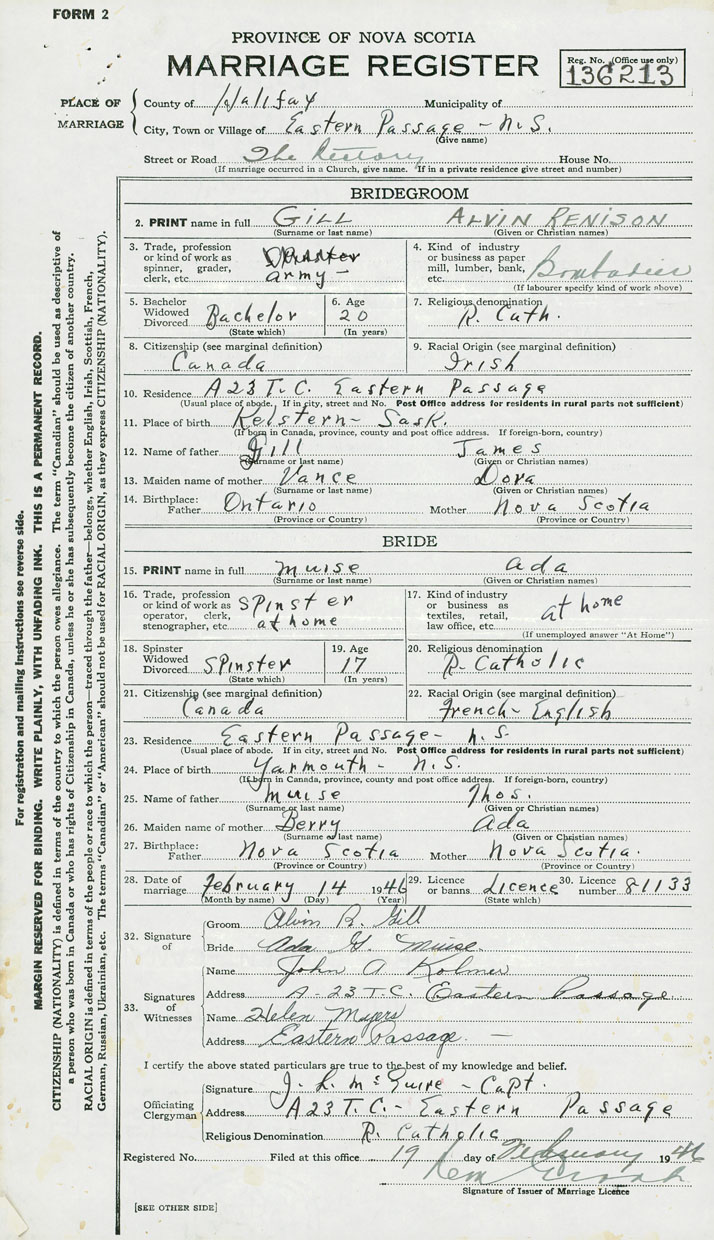 FORM 2
PROVINCE OF NOVA SCOTIA
MARRIAGE REGISTER
Reg. No. (Office use only)
136213
PLACE OF MARRIAGE
County of Halifax Municipality of
City, Town or Village of Eastern Passage - N.S.
(Give name)
Street or Road The Rectory House No.
(If marriage occurred in a Church, give name. If in a private residence give street and number)
BRIDEGROOM
2. PRINT name in full GILL ALVIN RENISON
(Surname or last name) (Given or Christian names)
3. Trade, profession or kind of work as spinner, grader, clerk, etc. army -
4. Kind of industry or business as paper mill, lumber, bank, etc. Bombadier
(If labourer specify kind of work above)
5. Bachelor Widowed Divorced Bachelor (State which)
6. Age 20 (In years)
7. Religious denomination R. Cath.
8. Citizenship (see marginal definition) Canada
9. Racial Origin (see marginal definition) Irish
10. Residence A23 T.C. Eastern Passage
(Usual place of abode. If in city, street and No. Post Office address for residents in rural parts not sufficient)
11. Place of birth Keistern - Sask.
(If born in Canada, province, county and post office address. If foreign-born, country)
12. Name of father Gill James
(Surname or last name) (Given or Christian names)
13. Maiden name of mother Vance Dora
(Surname or last name) (Given or Christian names)
14. Birthplace: Father Ontario Mother Nova Scotia
(Province or Country) (Province or Country)
BRIDE
15. PRINT name in full Muise Ada
(Surname or last name) (Given or Christian names)
16. Trade, profession or kind of work as operator, clerk, stenographer, etc. Spinster at home
17. Kind of industry or business as textiles, retail, law office, etc. at home
(If unemployed answer "At Home")
18. Spinster Widowed Divorced Spinster (State which)
19. Age 17 (In years)
20. Religious denomination R. Catholic
21. Citizenship (see marginal definition) Canada
22. Racial Origin (see marginal definition) French-English
23. Residence Eastern Passage - N.S
(Usual place of abode. If in city, street and No. Post Office address for residents in rural parts not sufficient)
24. Place of birth Yarmouth - N.S.
(If born in Canada, province, county and post office address. If foreign-born, country)
25. Name of father Muise Thos.
(Surname or last name) (Given or Christian names)
26. Maiden name of mother Berry Ada
(Surname or last name) (Given or Christian names)
27. Birthplace: Father Nova Scotia Mother Nova Scotia.
(Province or Country) (Province or Country)
28. Date of marriage February 14 1946
(Month by name) (Day) (Year)
29. Licence or banns Licence (State which)
30. Licence number 81133
32. Signature of
Groom Alvin R. Gill
Bride Ada G. Muise.
33. Signatures of Witnesses
Name John A Kolmer
Address A-23 T.C. Eastern Passage
Name Helen Myers
Address Eastern Passage. -
I certify the above stated particulars are true to the best of my knowledge and belief.
Officiating Clergyman
Signature J. L. McGuire - Capt.
Address A23 T.C. - Eastern Passage
Religious Denomination R. Catholic
Registered No. Filed at this office 19 day of February 1946
Signature of Issuer of Marriage Licence
[SEE OTHER SIDE]
For registration and mailing instructions see reverse side.
MARGIN RESERVED FOR BINDING. WRITE PLAINLY, WITH UNFADING INK. THIS IS A PERMANENT RECORD.
CITIZENSHIP (NATIONALITY) is defined in terms of the country to which the person owes allegiance. The term "Canadian" should be used as descriptive of
a person who was born in Canada or who has rights of Citizenship in Canada, unless he or she has subsequently become the citizen of another country.
RACIAL ORIGIN is defined in terms of the people or race to which the person—traced through the father—belongs, whether English, Irish, Scottish, French,
German, Russian, Ukrainian, etc. The terms "Canadian" or "American" should not be used for RACIAL ORIGIN, as they express CITIZENSHIP (NATIONALITY).